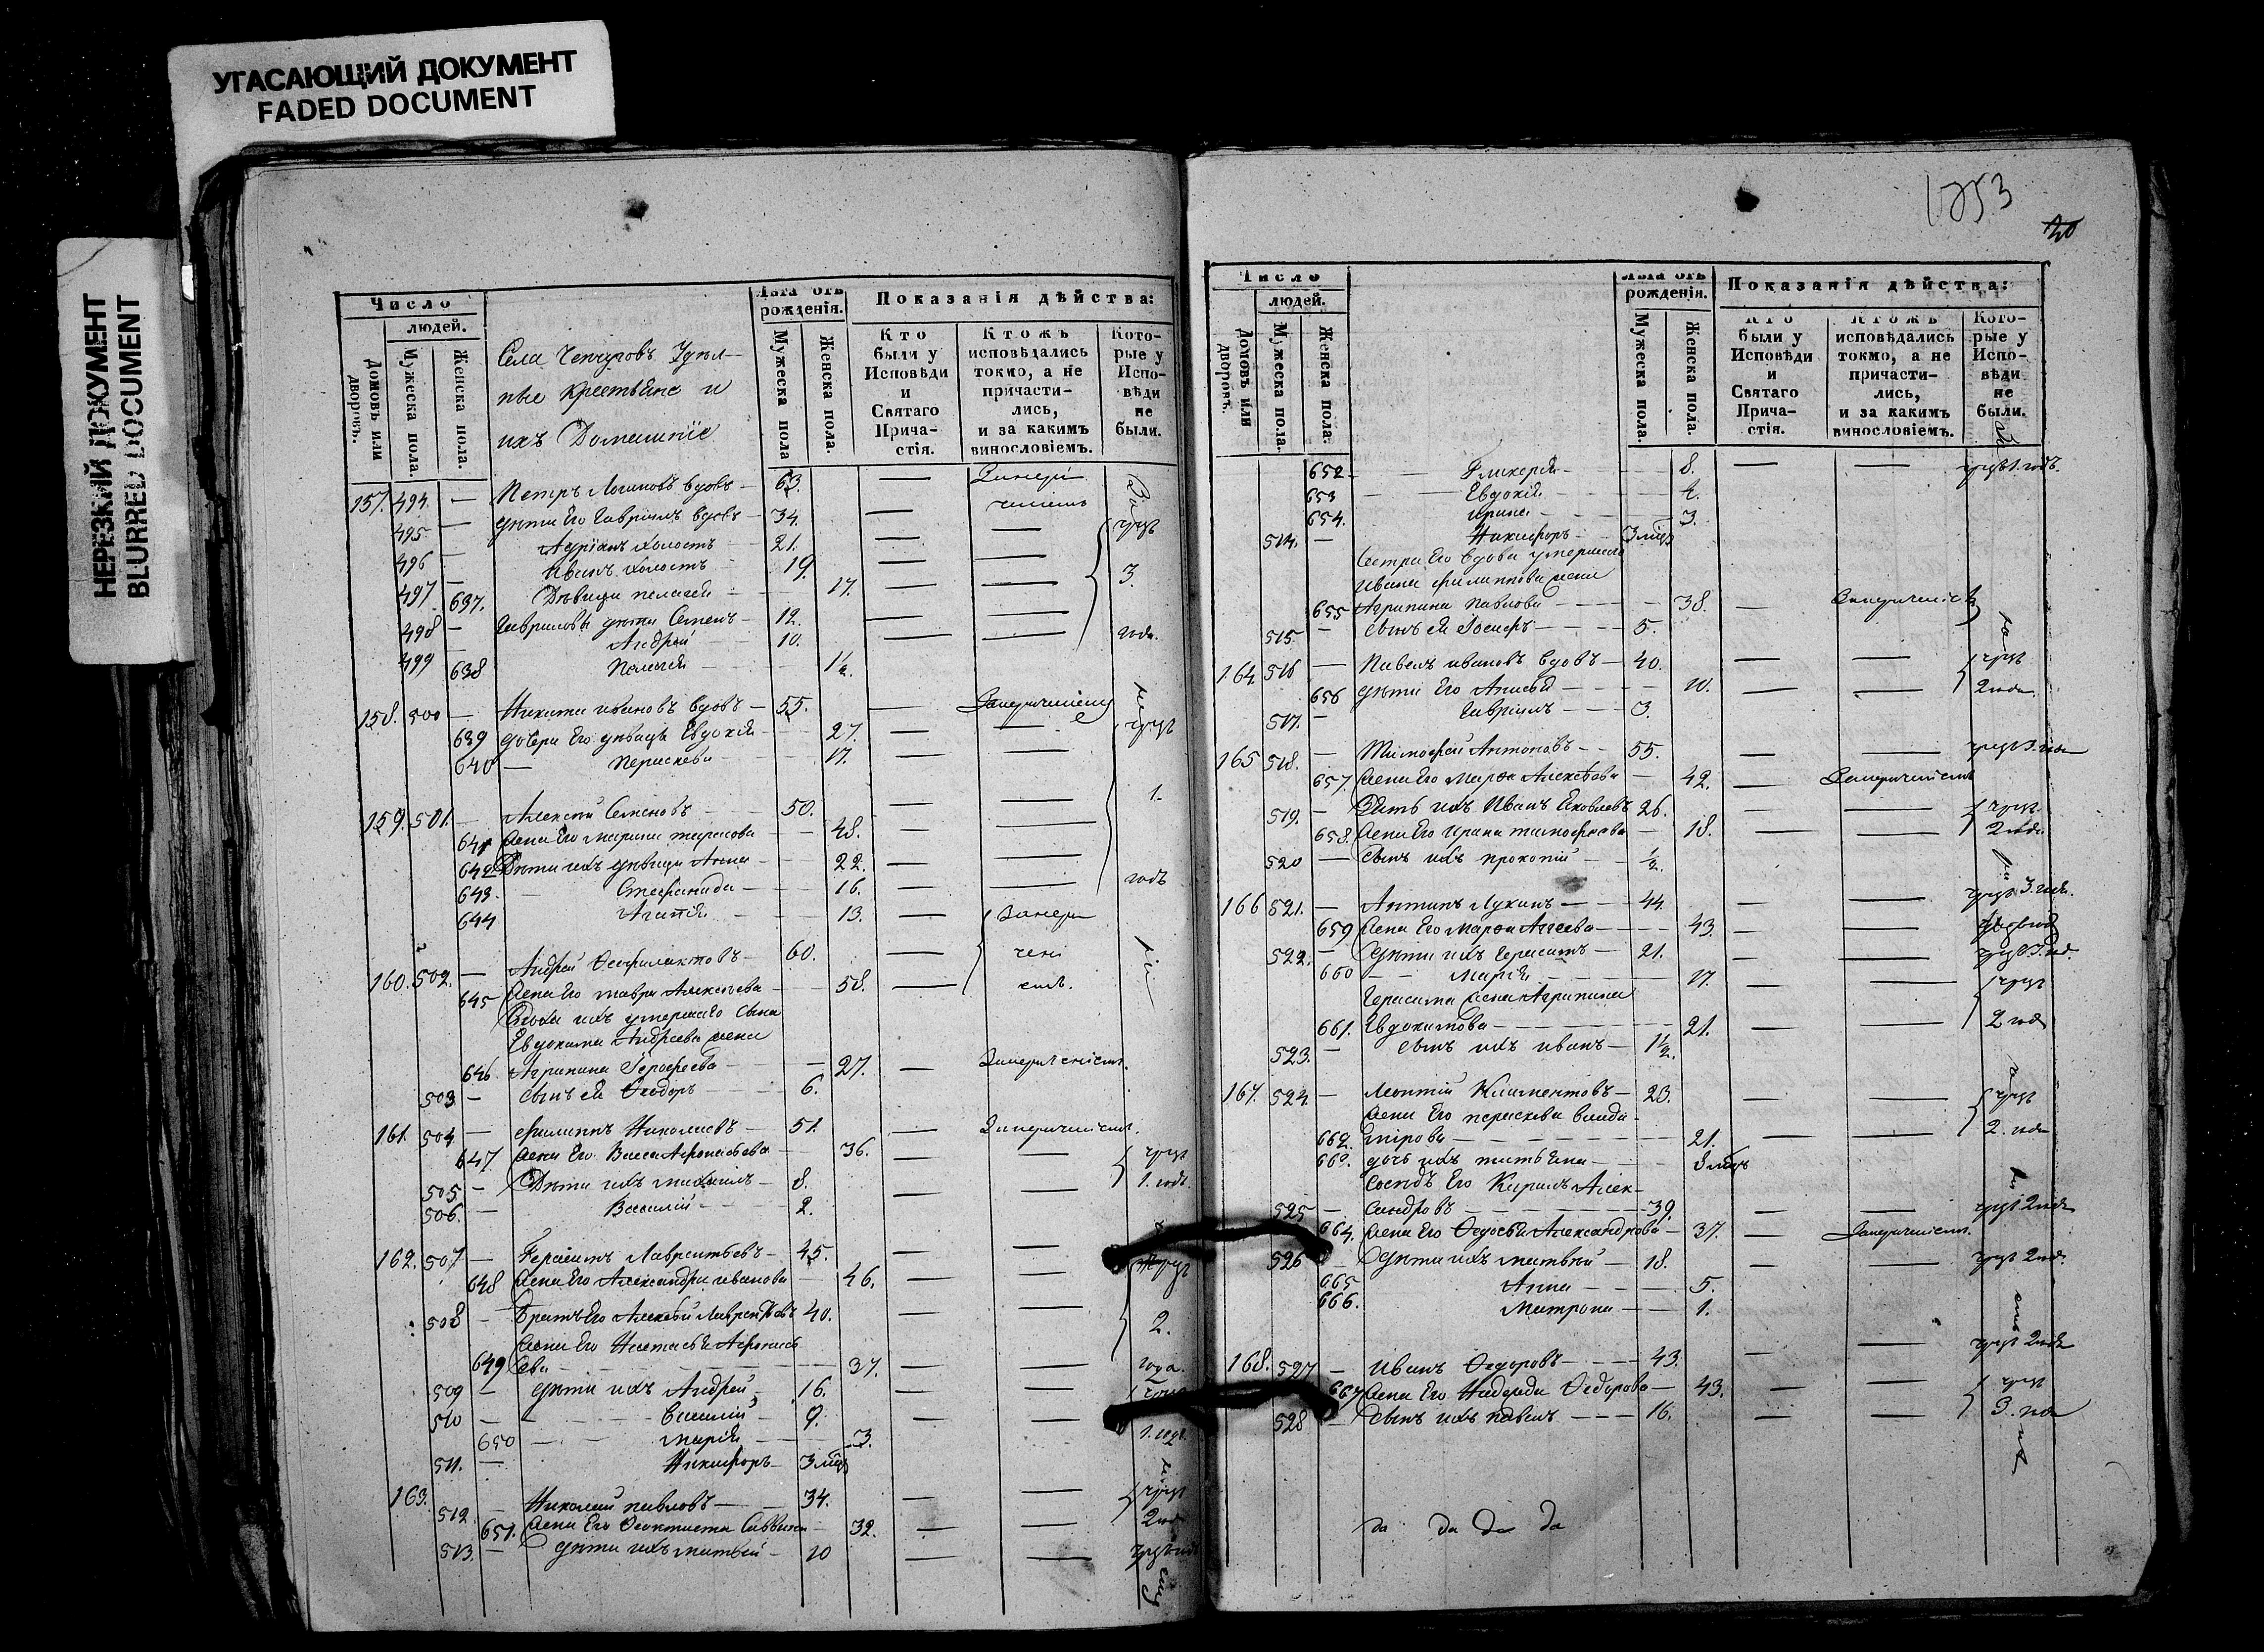 УГАСАЮЩИЙ ДОКУМЕНТ
FADED DOCUMENT
НЕРЕЗКИЙ ДОКУМЕНТ
BLURRED DOCUMENT
Число
людей.
Домовъ или дворовъ.
Мужеска пола.
Женска пола.
Села Чепчуговъ Удѣл-
ные крестьяне и
ихъ Домашніе
Лѣта отъ рожденія.
Мужеска пола
Женска пола.
Показанія дѣйства:
Кто были у Исповѣди и Святаго Прича- стія.
Ктожъ исповѣдались токмо, а не причасти- лись, и за какимъ винословіемъ.
Кото- рые у Испо- вѣди не были.
157. 494. — Петръ Логиновъ вдовъ — 63.
495 — дѣти Его Гавріилъ вдовъ — 34.
496 — Адріанъ холостъ — 21.
497 — Иванъ холостъ — 19.
637. Дѣвица пелагея — 17. 3.
498 — Гавриловы дѣти Семенъ — 12.
499 — Андрей 10. года.
638 Пелагея — 1½.
158. 500 — Никита ивановъ вдовъ — 55.
639 дочери Его дѣвицы Евдокія — 27.
640 — Параскева — 17.
159. 501. — Алексѣй Семеновъ 50. 1.
641 жена Его марина тарасова — 48.
642 Дѣти ихъ дѣвицы Анна — 22.
643. — Стефанида — 16. годъ
644 Агапія — 13.
160. 502. — Андрей Феофилактовъ — 60.
645 жена Его мавра Алексѣева — 58.
Сноха ихъ умершаго сына
Евдокима Андреева жена
646 Агрипина Герофеева — 27.
503 — сынъ ея Феодоръ — 6.
161. 504 — филиппъ Николаевъ — 51.
647 жена Его Васса Афонасьева — 36.
505 — Дѣти ихъ михаилъ — 8. 1. годъ
506. — Василій — 2.
162. 507 — Герасимъ Лаврентьевъ — 45.
648 жена Его Александра иванова — 46.
508 — Братъ Его Алексѣй Лаврентьевъ 40. 2.
жена Его Настасья Афонась
649 ева — 37. года.
509 — дѣти ихъ Андрей — 16.
510 — Василій — 9.
650 — марія — 3. 1. годъ.
511. — Никифоръ — 3 мѣц
163. 512 — Николай павловъ — 34.
651. жена Его Феоктиста Саввина — 32.
513. — дѣти ихъ матвей — 10
1253
20
Число
людей.
Домовъ или дворовъ.
Мужеска пола.
Женска пола.
Лѣта отъ рожденія.
Мужеска пола.
Женска пола.
Показанія дѣйства:
Кто были у Исповѣди и Святаго Прича- стія.
Ктожъ исповѣдались токмо, а не причасти- лись, и за какимъ винословіемъ.
Кото- рые у Испо- вѣди не были.
652 — Гликерія — 8.
653 — Евдокія
654. Ирина — 3.
514. — Никифоръ — 3 мѣц
Сестра Его вдова умершаго
ивана филиппова жена
655 Агрипина павлова — 38.
515 — сынъ ея Іосифъ — 5.
164 516 — Павелъ ивановъ вдовъ — 40.
656 дѣти Его Анисья — 10. 2 года.
517. — Гавріилъ — 3.
165 518. — Тимофей Антоновъ — 55.
657. жена Его Марфа Алексѣева — 42.
519. — Зять ихъ Иванъ Яковлевъ 26.
658. жена Его Ирина тимофеева — 18.
520 — сынъ ихъ прокопій — ½.
166 521. — Антипъ Лукинъ — 44.
659 жена Его Марфа Агѣева — 43.
522. — дѣти ихъ Герасимъ — 21.
660 — Марія — 17.
Герасима жена Агрипина
661. Евдокимова — 21.
523. — сынъ ихъ иванъ — 1½.
167. 524. — Леонтій Климентовъ — 23.
жена Его параскева влади-
662. мірова — 21.
663. дочь ихъ татьяна —
Сосѣдъ Его Кирилъ Алек-
525 — сандровъ — 39.
664. жена Его Федосья Александрова — 37.
526 — дѣти ихъ матвей — 18.
665 Анна — 5.
666. Матрона — 1.
168. 527 — иванъ Федоровъ — 43.
667 жена Его Надежда Федорова — 43.
528 — сынъ ихъ павелъ — 16.
да да да да